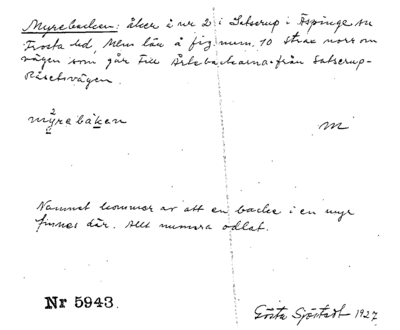 Myrebacken: åker i nr 2 i Satserup i Äspinge sn
Frosta hd, Mlm län å fig. num. 10 strax norr om
vägen som går till Årlebackarna från Satserup-
Råsetsvägen.
mỳrebåken
m
Namnet kommer av att en backe i en myr
finnes där. Allt numera odlat.
Nr 5943.
Gösta Sjöstedt 1927